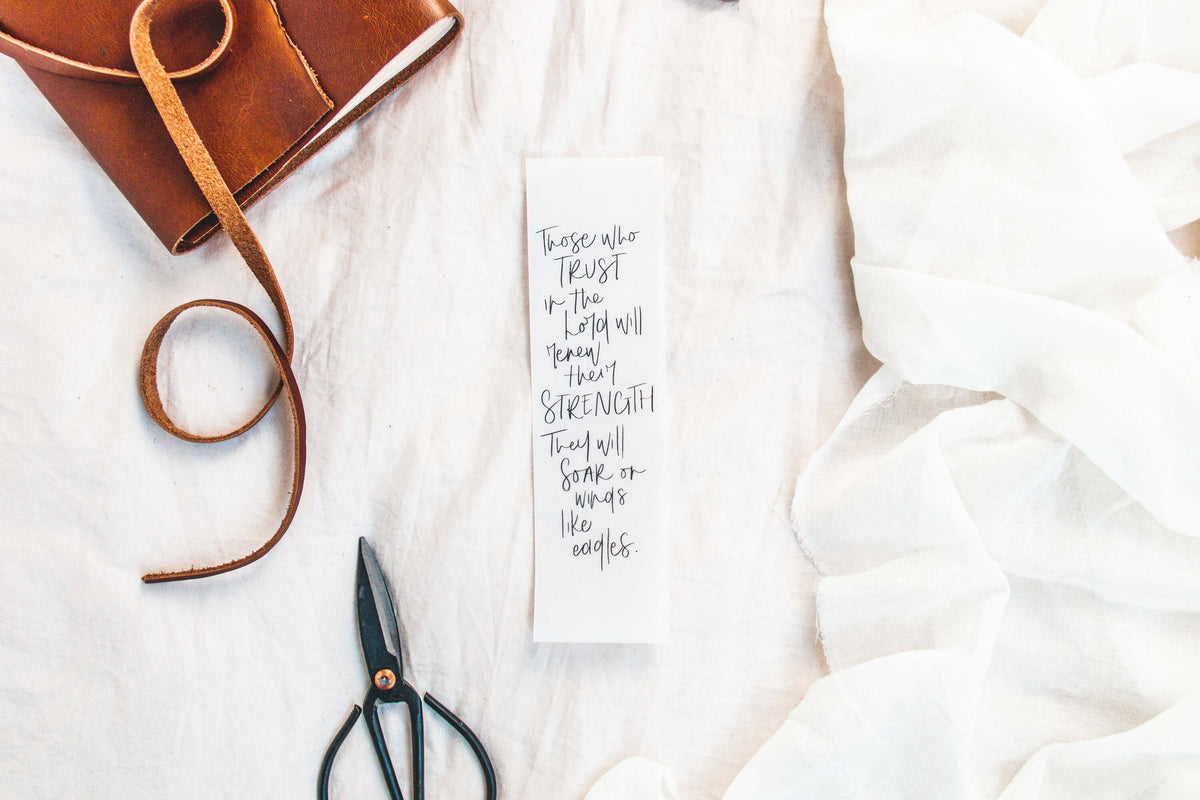 Those who
TRUST
in the
Lord will
renew
their
STRENGTH
They will
SOAR on
winds
like
eagles.